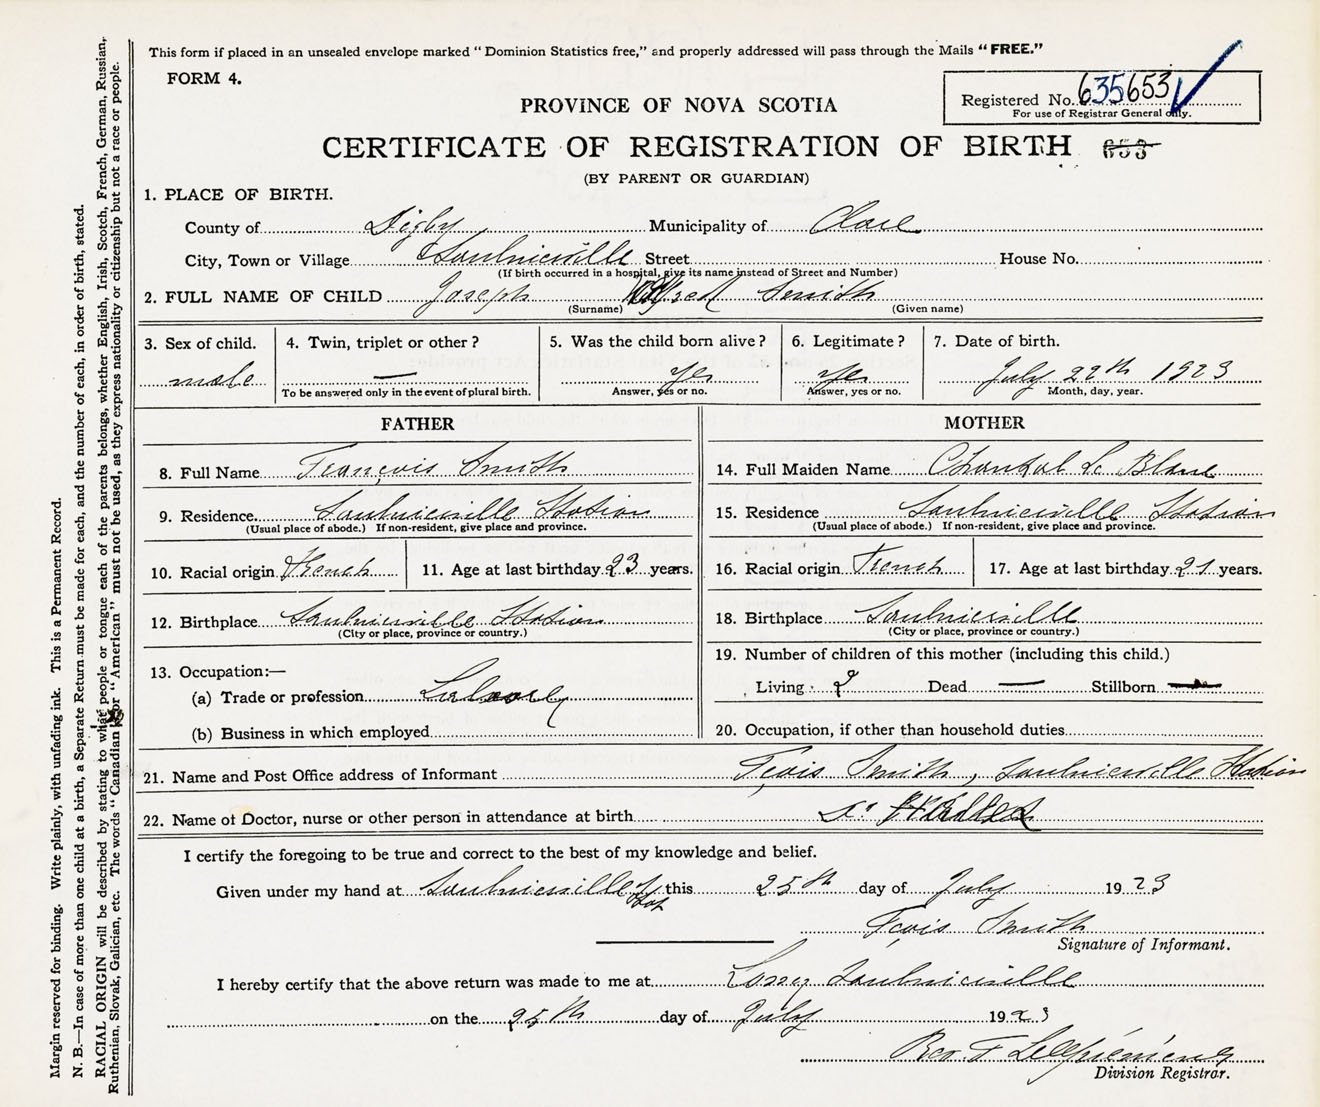 This form if placed in an unsealed envelope marked "Dominion Statistics free," and properly addressed will pass through the Mails "FREE."
FORM 4.
Registered No. 635653
For use of Registrar General only.
PROVINCE OF NOVA SCOTIA
CERTIFICATE OF REGISTRATION OF BIRTH 653
(BY PARENT OR GUARDIAN)
1. PLACE OF BIRTH.
County of Digby Municipality of Clare
City, Town or Village Saulnierville Street House No.
(If birth occurred in a hospital, give its name instead of Street and Number)
2. FULL NAME OF CHILD Joseph Smith
(Surname) (Given name)
3. Sex of child. 4. Twin, triplet or other? 5. Was the child born alive? 6. Legitimate? 7. Date of birth.
male — yes yes July 22th 1923
To be answered only in the event of plural birth. Answer, yes or no. Answer, yes or no. Month, day, year.
FATHER MOTHER
8. Full Name François Smith 14. Full Maiden Name Chantal Le Blanc
9. Residence Saulnierville Station 15. Residence Saulnierville Station
(Usual place of abode.) If non-resident, give place and province. (Usual place of abode.) If non-resident, give place and province.
10. Racial origin French 11. Age at last birthday 23 years. 16. Racial origin French 17. Age at last birthday 21 years.
12. Birthplace Saulnierville Station 18. Birthplace Saulnierville
(City or place, province or country.) (City or place, province or country.)
13. Occupation:— 19. Number of children of this mother (including this child.)
(a) Trade or profession Living 2 Dead — Stillborn —
(b) Business in which employed 20. Occupation, if other than household duties
21. Name and Post Office address of Informant Fçois Smith, Saulnierville Station
22. Name of Doctor, nurse or other person in attendance at birth
I certify the foregoing to be true and correct to the best of my knowledge and belief.
Given under my hand at Saulnierville this 25th day of July 1923
Fçois Smith
Signature of Informant.
I hereby certify that the above return was made to me at Saulnierville
on the 25th day of July 1923
Rev. F
Division Registrar.
Margin reserved for binding. Write plainly, with unfading ink. This is a Permanent Record.
N. B.—In case of more than one child at a birth, a Separate Return must be made for each, and the number of each, in order of birth, stated.
RACIAL ORIGIN will be described by stating to what people or tongue each of the parents belongs, whether English, Irish, Scotch, French, German, Russian,
Ruthenian, Slovak, Galician, etc. The words "Canadian" or "American" must not be used, as they express nationality or citizenship but not a race or people.